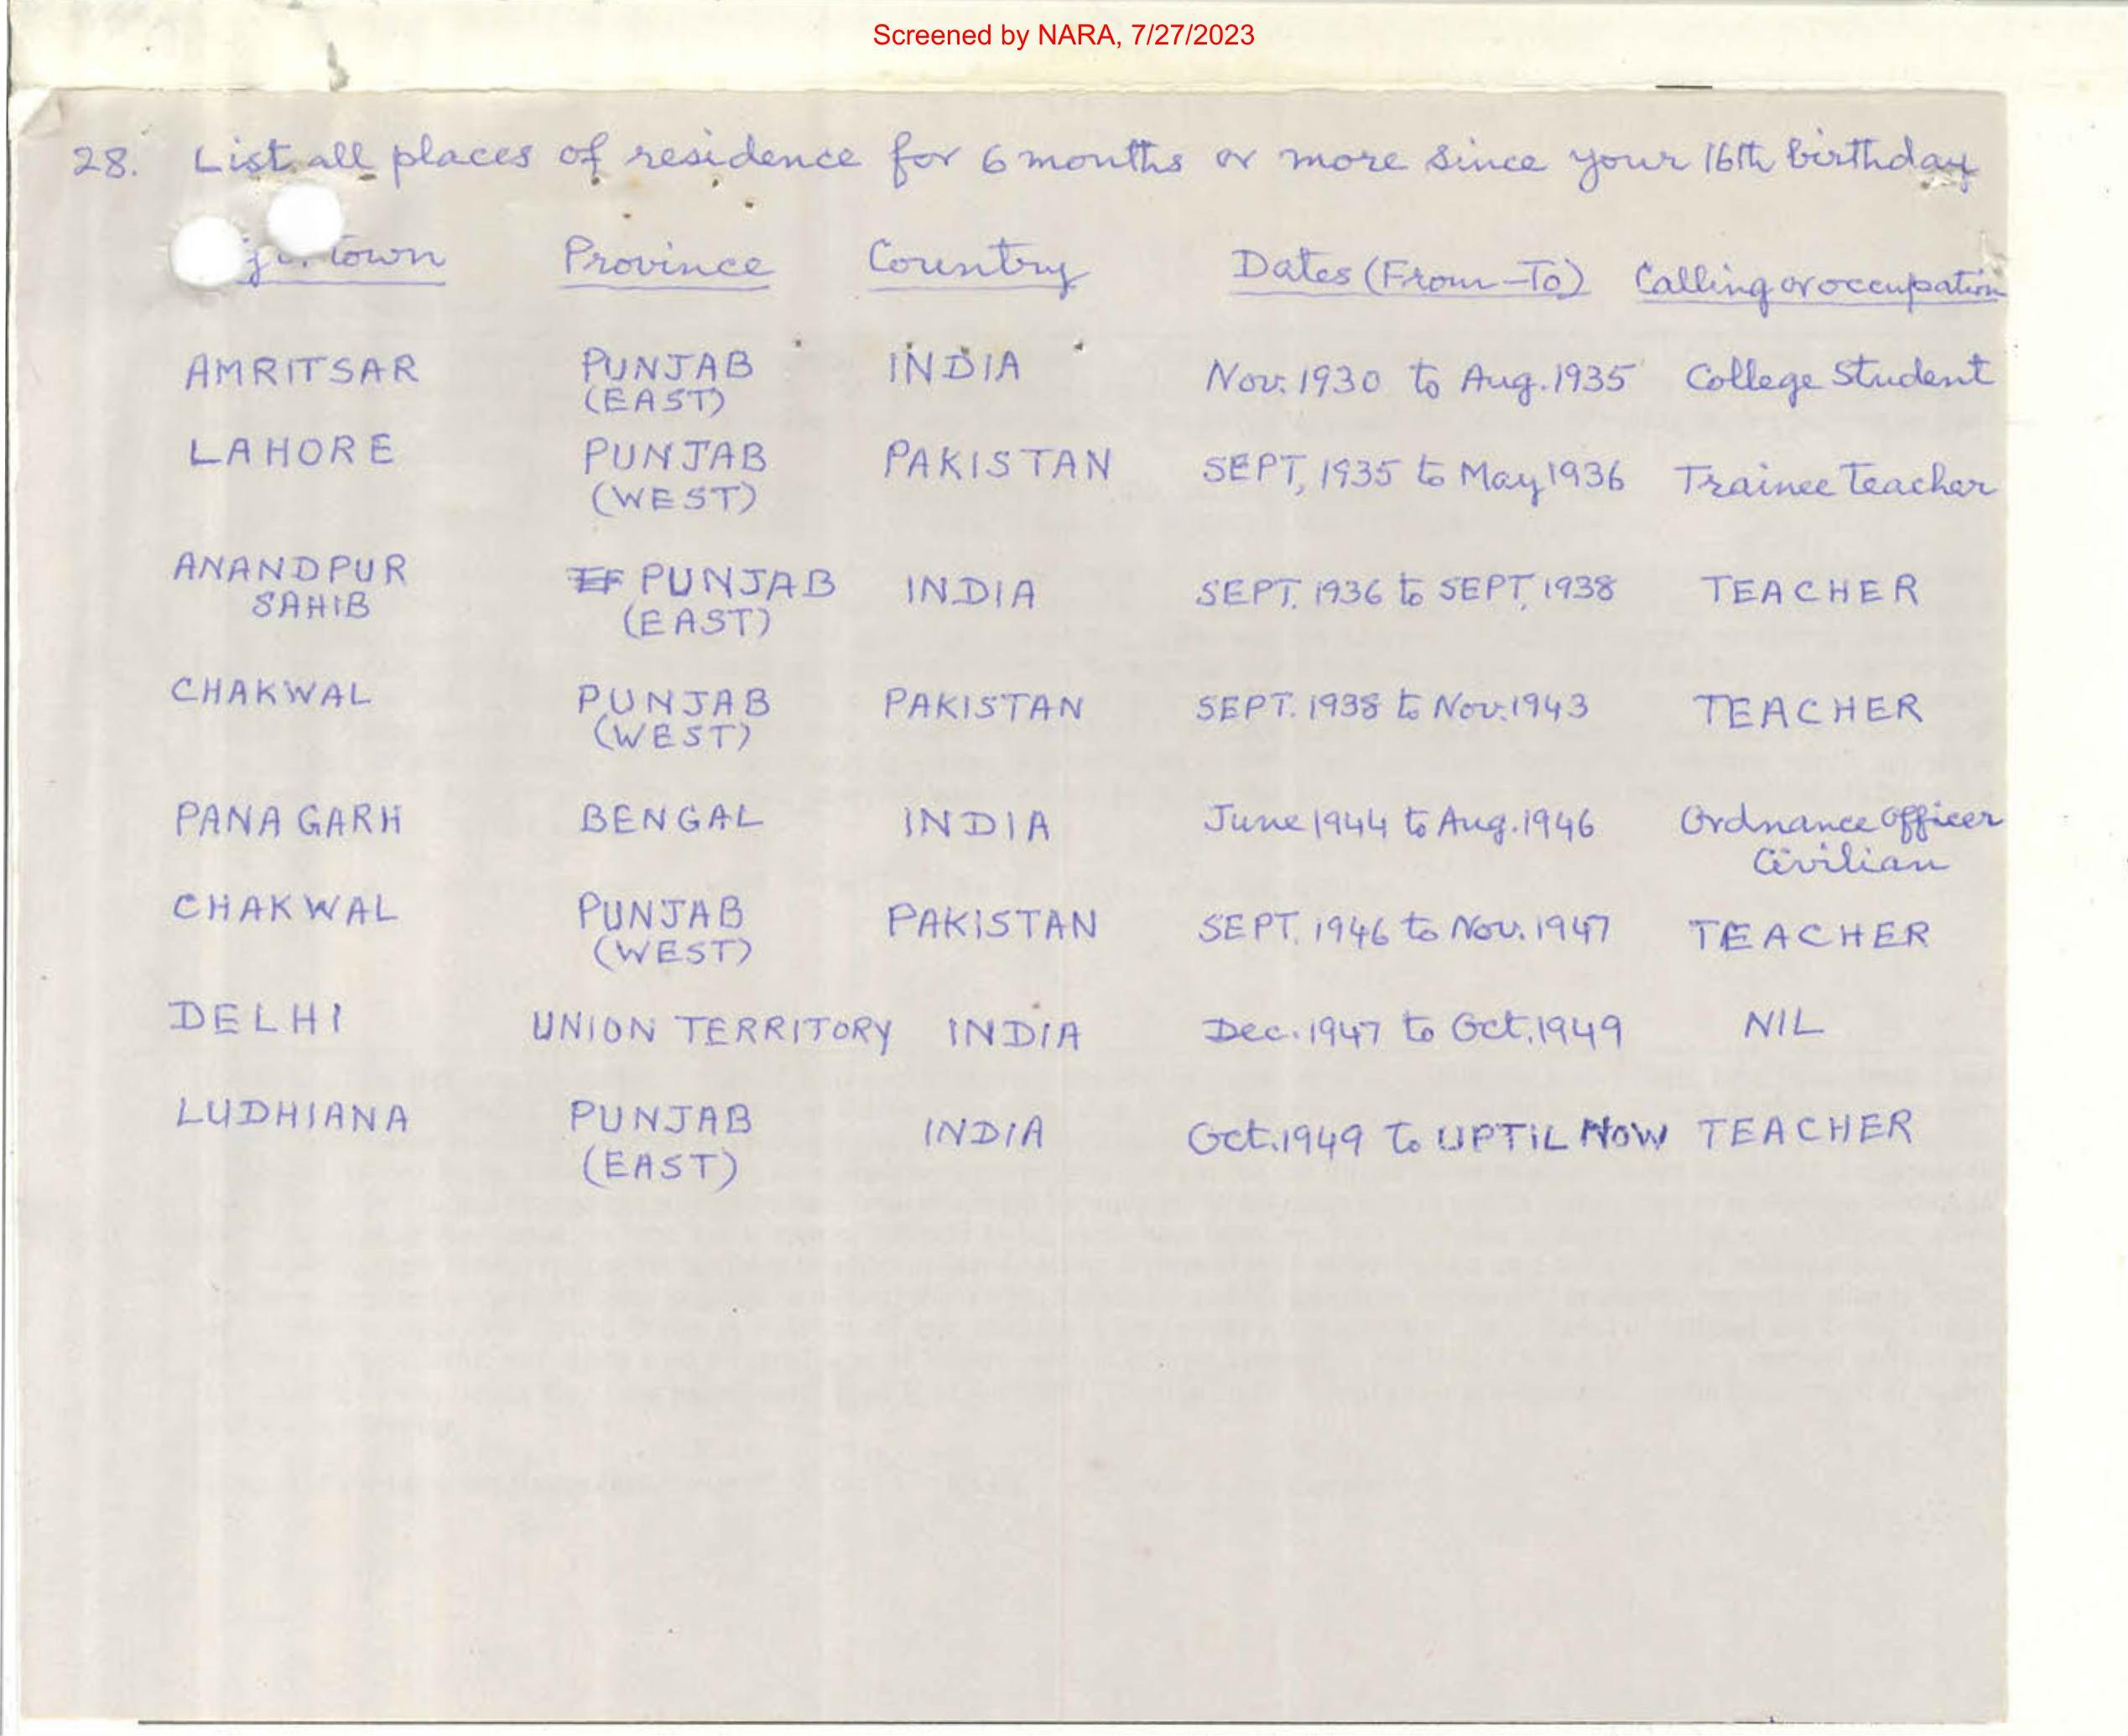 Screened by NARA, 7/27/2023
28. List all places of residence for 6 months or more since your 16th birthday
Town Province Country Dates (From-To) Calling or occupation
AMRITSAR PUNJAB INDIA Nov. 1930 to Aug. 1935 College Student
(EAST)
LAHORE PUNJAB PAKISTAN SEPT, 1935 to May 1936 Trainee Teacher
(WEST)
ANANDPUR PUNJAB INDIA SEPT. 1936 to SEPT, 1938 TEACHER
SAHIB (EAST)
CHAKWAL PUNJAB PAKISTAN SEPT. 1938 to Nov. 1943 TEACHER
(WEST)
PANAGARH BENGAL INDIA June 1944 to Aug. 1946 Ordnance Officer
Civilian
CHAKWAL PUNJAB PAKISTAN SEPT. 1946 to Nov. 1947 TEACHER
(WEST)
DELHI UNION TERRITORY INDIA Dec. 1947 to Oct. 1949 NIL
LUDHIANA PUNJAB INDIA Oct. 1949 to UPTIL NOW TEACHER
(EAST)